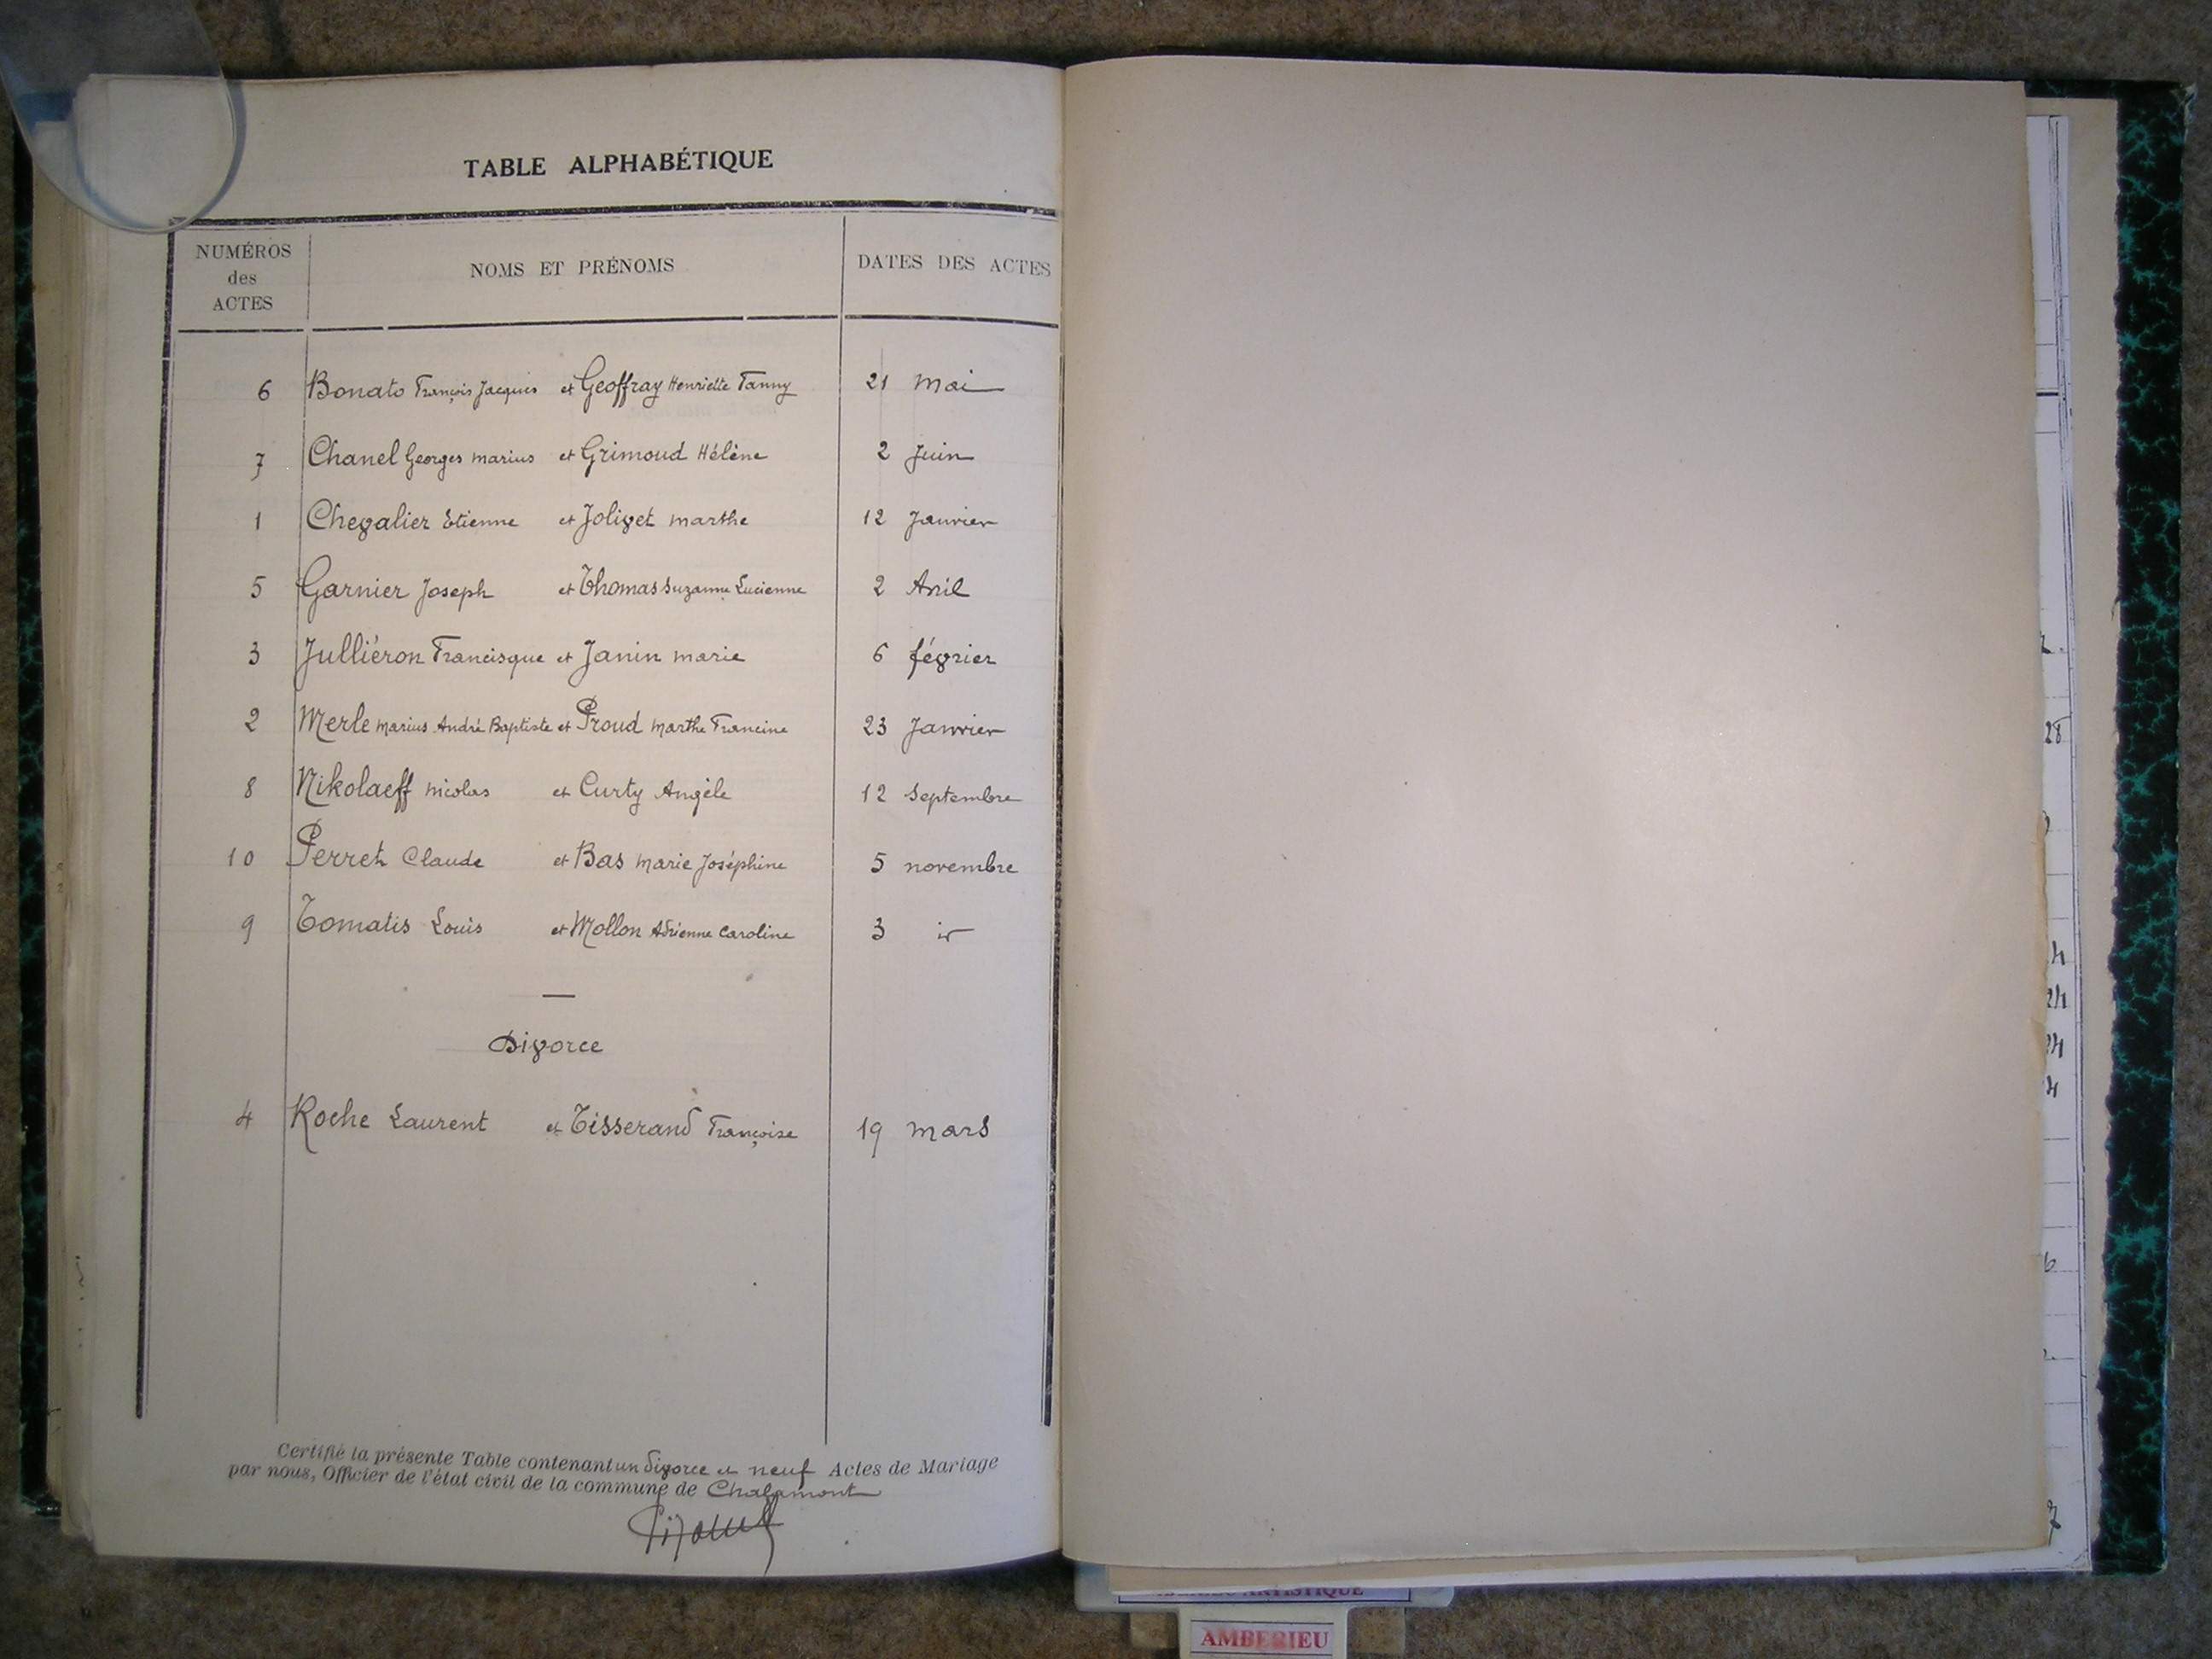 TABLE ALPHABÉTIQUE
NUMÉROS des ACTES NOMS ET PRÉNOMS DATES DES ACTES
6 Bonato François Jacques et Geoffray Henriette Fanny 21 Mai
7 Chanel Georges Marius et Grimoud Hélène 2 Juin
1 Chevalier Etienne et Jolivet Marthe 12 Janvier
5 Garnier Joseph et Thomas Suzanne Lucienne 2 Avril
3 Julliéron Francisque et Janin Marie 6 février
2 Merle Marius André Baptiste et Proud Marthe Francine 23 Janvier
8 Nikolaeff Nicolas et Curty Angèle 12 Septembre
10 Perret Claude et Bas Marie Joséphine 5 novembre
9 Tomatis Louis et Mollon Adrienne Caroline 3
Divorce
4 Roche Laurent et Tisserand Françoise 19 Mars
Certifié la présente Table contenant un divorce et neuf Actes de Mariage
par nous, Officier de l'état civil de la commune de Chalamont
ARTISTIQUE
AMBERIEU